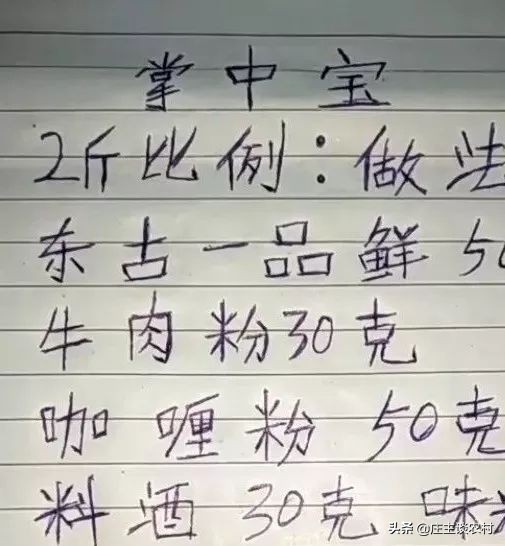 掌中宝
2斤比例：做法
东古一品鲜 50
牛肉粉30克
咖喱粉 50克
料酒 30克 味
头条@庄主谈农村